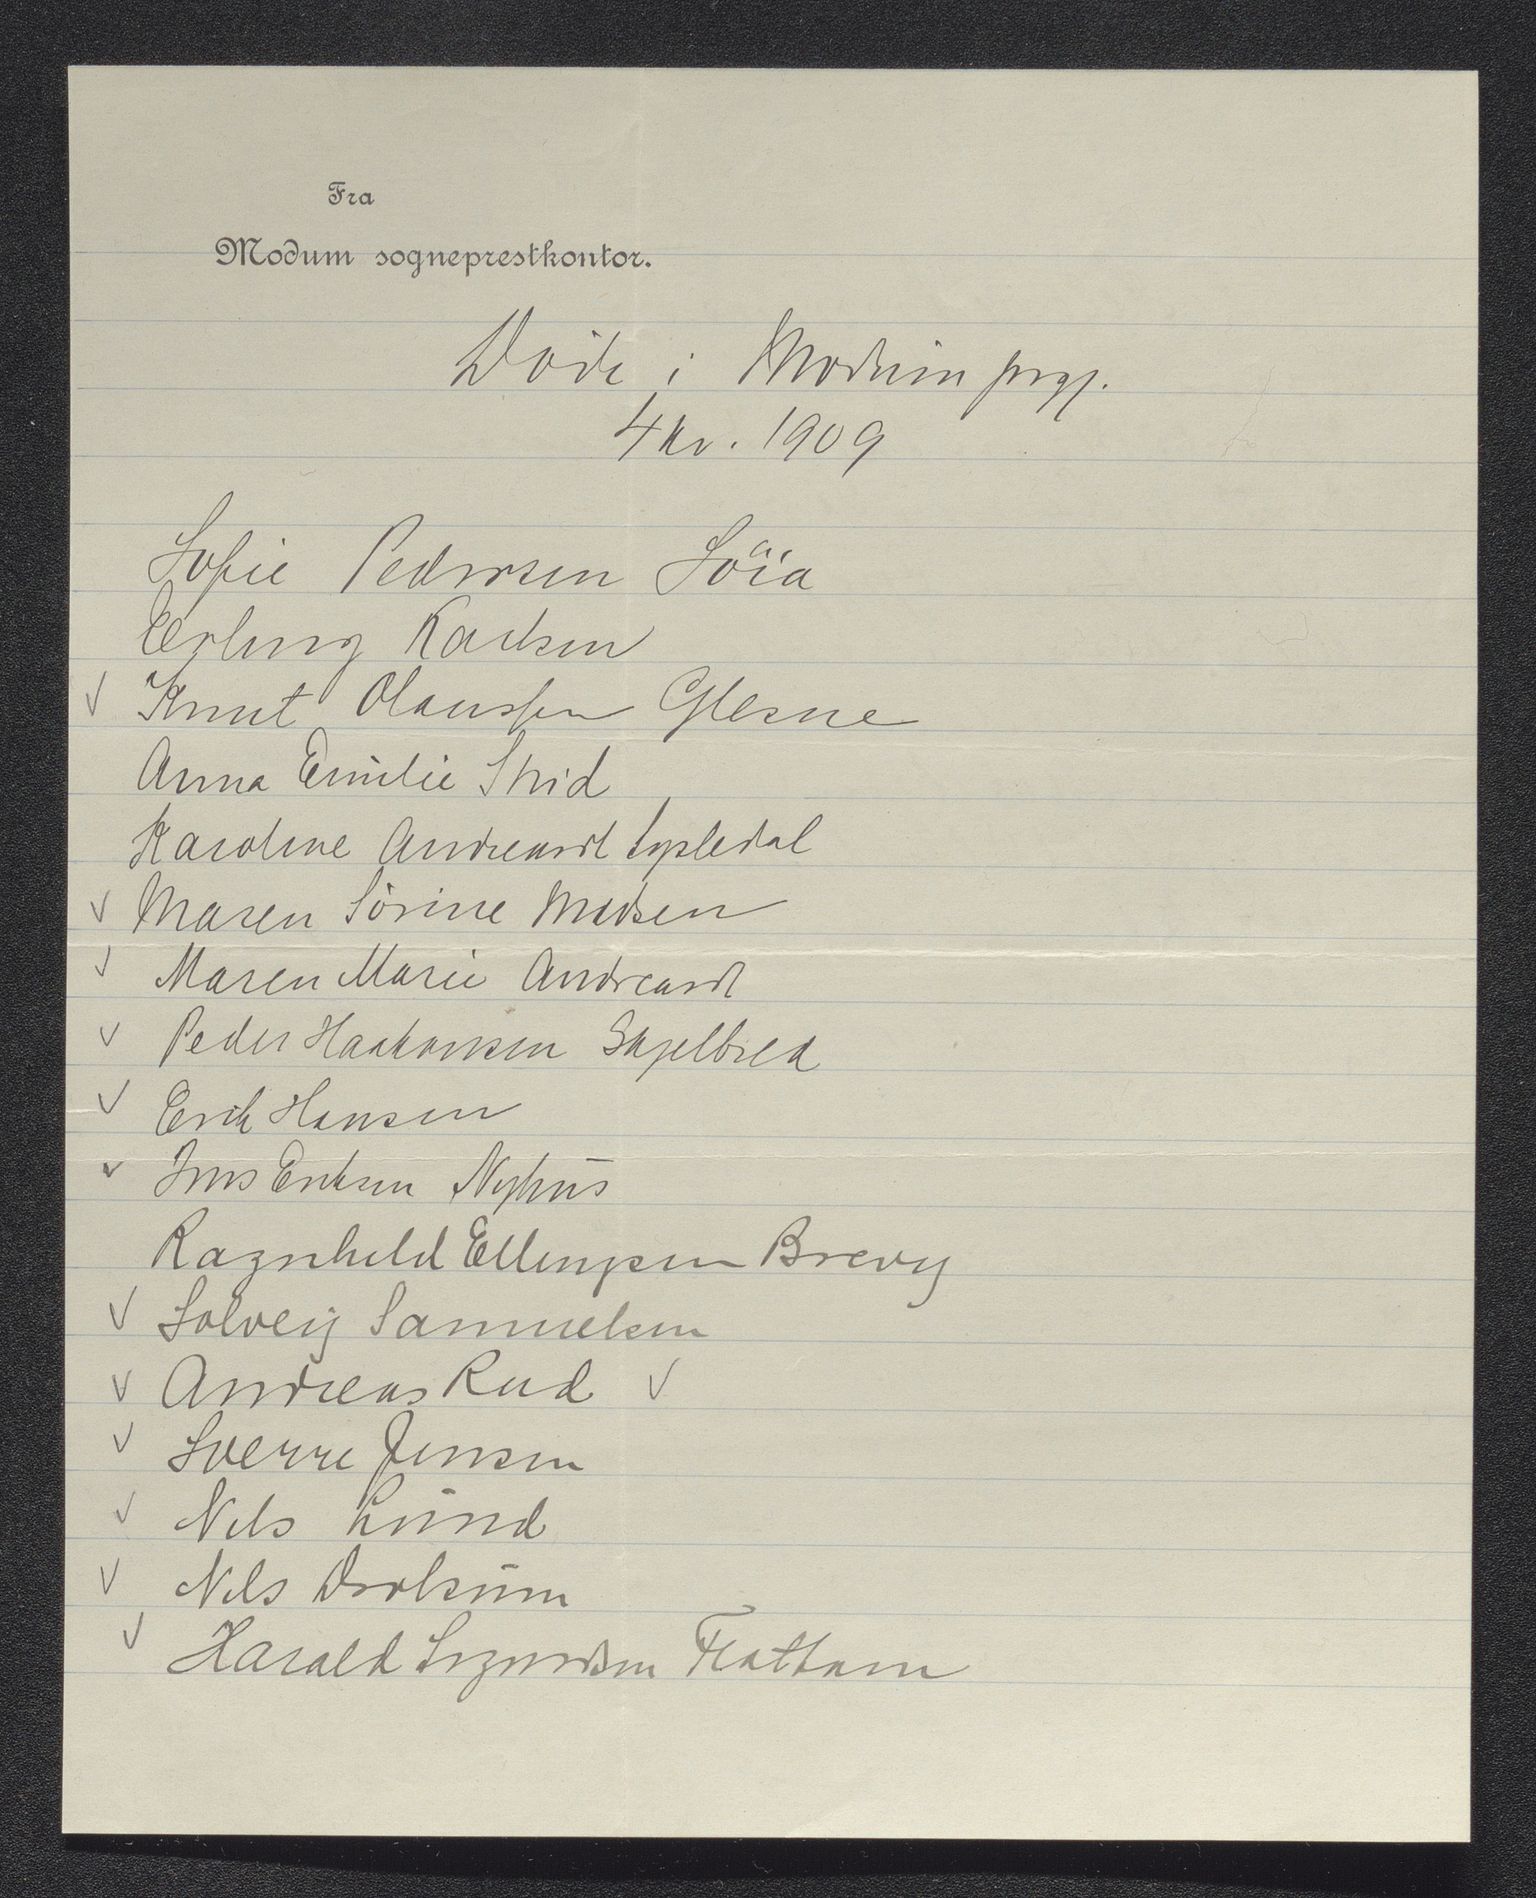 Fra
Modum sogneprestkontor.
Døde i Modum prgj.
4 kv. 1909
Sofie Pedersen
Erling Karlsen
Knut Olaussen Glesne
Anna Emilie Strid
Karoline Andreasdt
Maren Sørine Madsen
Maren Marie Andreasdt
Peder Haakonsen Skjelbred
Erik Hansen
Jens Eriksen Nyhus
Ragnhild Ellingsen Brevig
Solveig Samuelsen
Andreas Rud
Sverre Jensen
Nils Lund
Nils Drolsum
Harald Sigurdsen Flattum